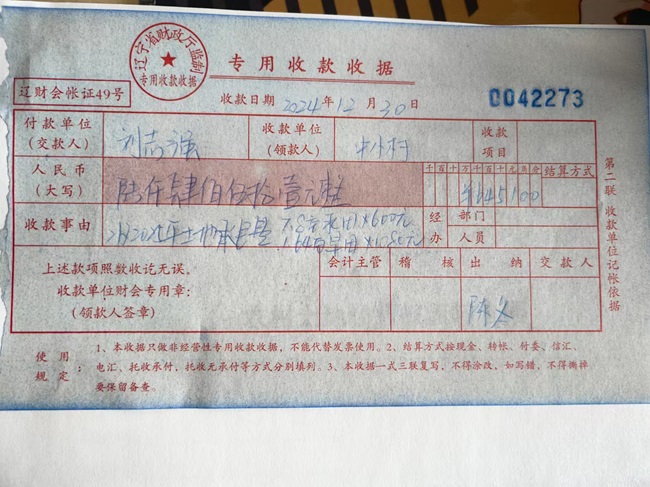 辽宁省财政厅监制
专用收款收据
专用收款收据
辽财会帐证49号
收款日期 2024年12月30日
0042273
付款单位
(交款人)
刘志强
收款单位
(领款人)
收款
项目
人民币
(大写)
陆仟肆佰伍拾壹元整
千百十万千百十元角分
¥645100
结算方式
收款事由
经办
部门
人员
上述款项照数收讫无误。
收款单位财会专用章:
(领款人签章)
会计主管
稽核
出纳
交款人
使用规定:
1、本收据只做非经营性专用收款收据,不能代替发票使用。2、结算方式按现金、转帐、付委、信汇、
电汇、托收承付,托收无承付等方式分别填列。3、本收据一式三联复写,不得涂改,如写错,不得撕掉
要保留备查。
第二联 收款单位记帐依据